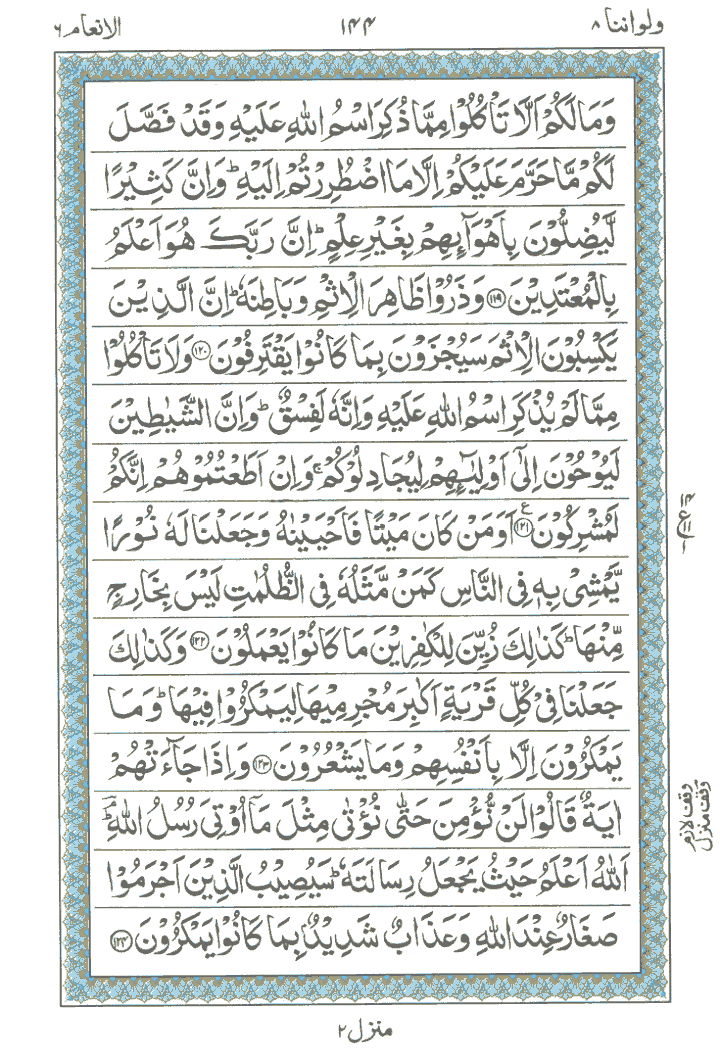 ولواننا ٨
١٤٤
الانعام ٦
وَمَا لَكُمْ اَلَّا تَاْكُلُوْا مِمَّا ذُكِرَ اسْمُ اللّٰهِ عَلَيْهِ وَقَدْ فَصَّلَ
لَكُمْ مَّا حَرَّمَ عَلَيْكُمْ اِلَّا مَا اضْطُرِرْتُمْ اِلَيْهِ ؕ وَاِنَّ كَثِيْرًا
لَّيُضِلُّوْنَ بِاَهْوَآئِهِمْ بِغَيْرِ عِلْمٍ ؕ اِنَّ رَبَّكَ هُوَ اَعْلَمُ
بِالْمُعْتَدِيْنَ ﴿۱۱۹﴾ وَذَرُوْا ظَاهِرَ الْاِثْمِ وَبَاطِنَهٗ ؕ اِنَّ الَّذِيْنَ
يَكْسِبُوْنَ الْاِثْمَ سَيُجْزَوْنَ بِمَا كَانُوْا يَقْتَرِفُوْنَ ﴿۱۲۰﴾ وَلَا تَاْكُلُوْا
مِمَّا لَمْ يُذْكَرِ اسْمُ اللّٰهِ عَلَيْهِ وَاِنَّهٗ لَفِسْقٌ ؕ وَاِنَّ الشَّيٰطِيْنَ
لَيُوْحُوْنَ اِلٰٓى اَوْلِيٰٓئِهِمْ لِيُجَادِلُوْكُمْ ۚ وَاِنْ اَطَعْتُمُوْهُمْ اِنَّكُمْ
لَمُشْرِكُوْنَ ﴿۱۲۱﴾ ع اَوَمَنْ كَانَ مَيْتًا فَاَحْيَيْنٰهُ وَجَعَلْنَا لَهٗ نُوْرًا
يَّمْشِيْ بِهٖ فِى النَّاسِ كَمَنْ مَّثَلُهٗ فِى الظُّلُمٰتِ لَيْسَ بِخَارِجٍ
مِّنْهَا ؕ كَذٰلِكَ زُيِّنَ لِلْكٰفِرِيْنَ مَا كَانُوْا يَعْمَلُوْنَ ﴿۱۲۲﴾ وَكَذٰلِكَ
جَعَلْنَا فِيْ كُلِّ قَرْيَةٍ اَكٰبِرَ مُجْرِمِيْهَا لِيَمْكُرُوْا فِيْهَا ؕ وَمَا
يَمْكُرُوْنَ اِلَّا بِاَنْفُسِهِمْ وَمَا يَشْعُرُوْنَ ﴿۱۲۳﴾ وَاِذَا جَآءَتْهُمْ
اٰيَةٌ قَالُوْا لَنْ نُّؤْمِنَ حَتّٰى نُؤْتٰى مِثْلَ مَآ اُوْتِيَ رُسُلُ اللّٰهِ ؔۘؕ
اَللّٰهُ اَعْلَمُ حَيْثُ يَجْعَلُ رِسَالَتَهٗ ؕ سَيُصِيْبُ الَّذِيْنَ اَجْرَمُوْا
صَغَارٌ عِنْدَ اللّٰهِ وَعَذَابٌ شَدِيْدٌۢ بِمَا كَانُوْا يَمْكُرُوْنَ ﴿۱۲۴﴾
ع
وقف لازم
وقف منزل
منزل ٢